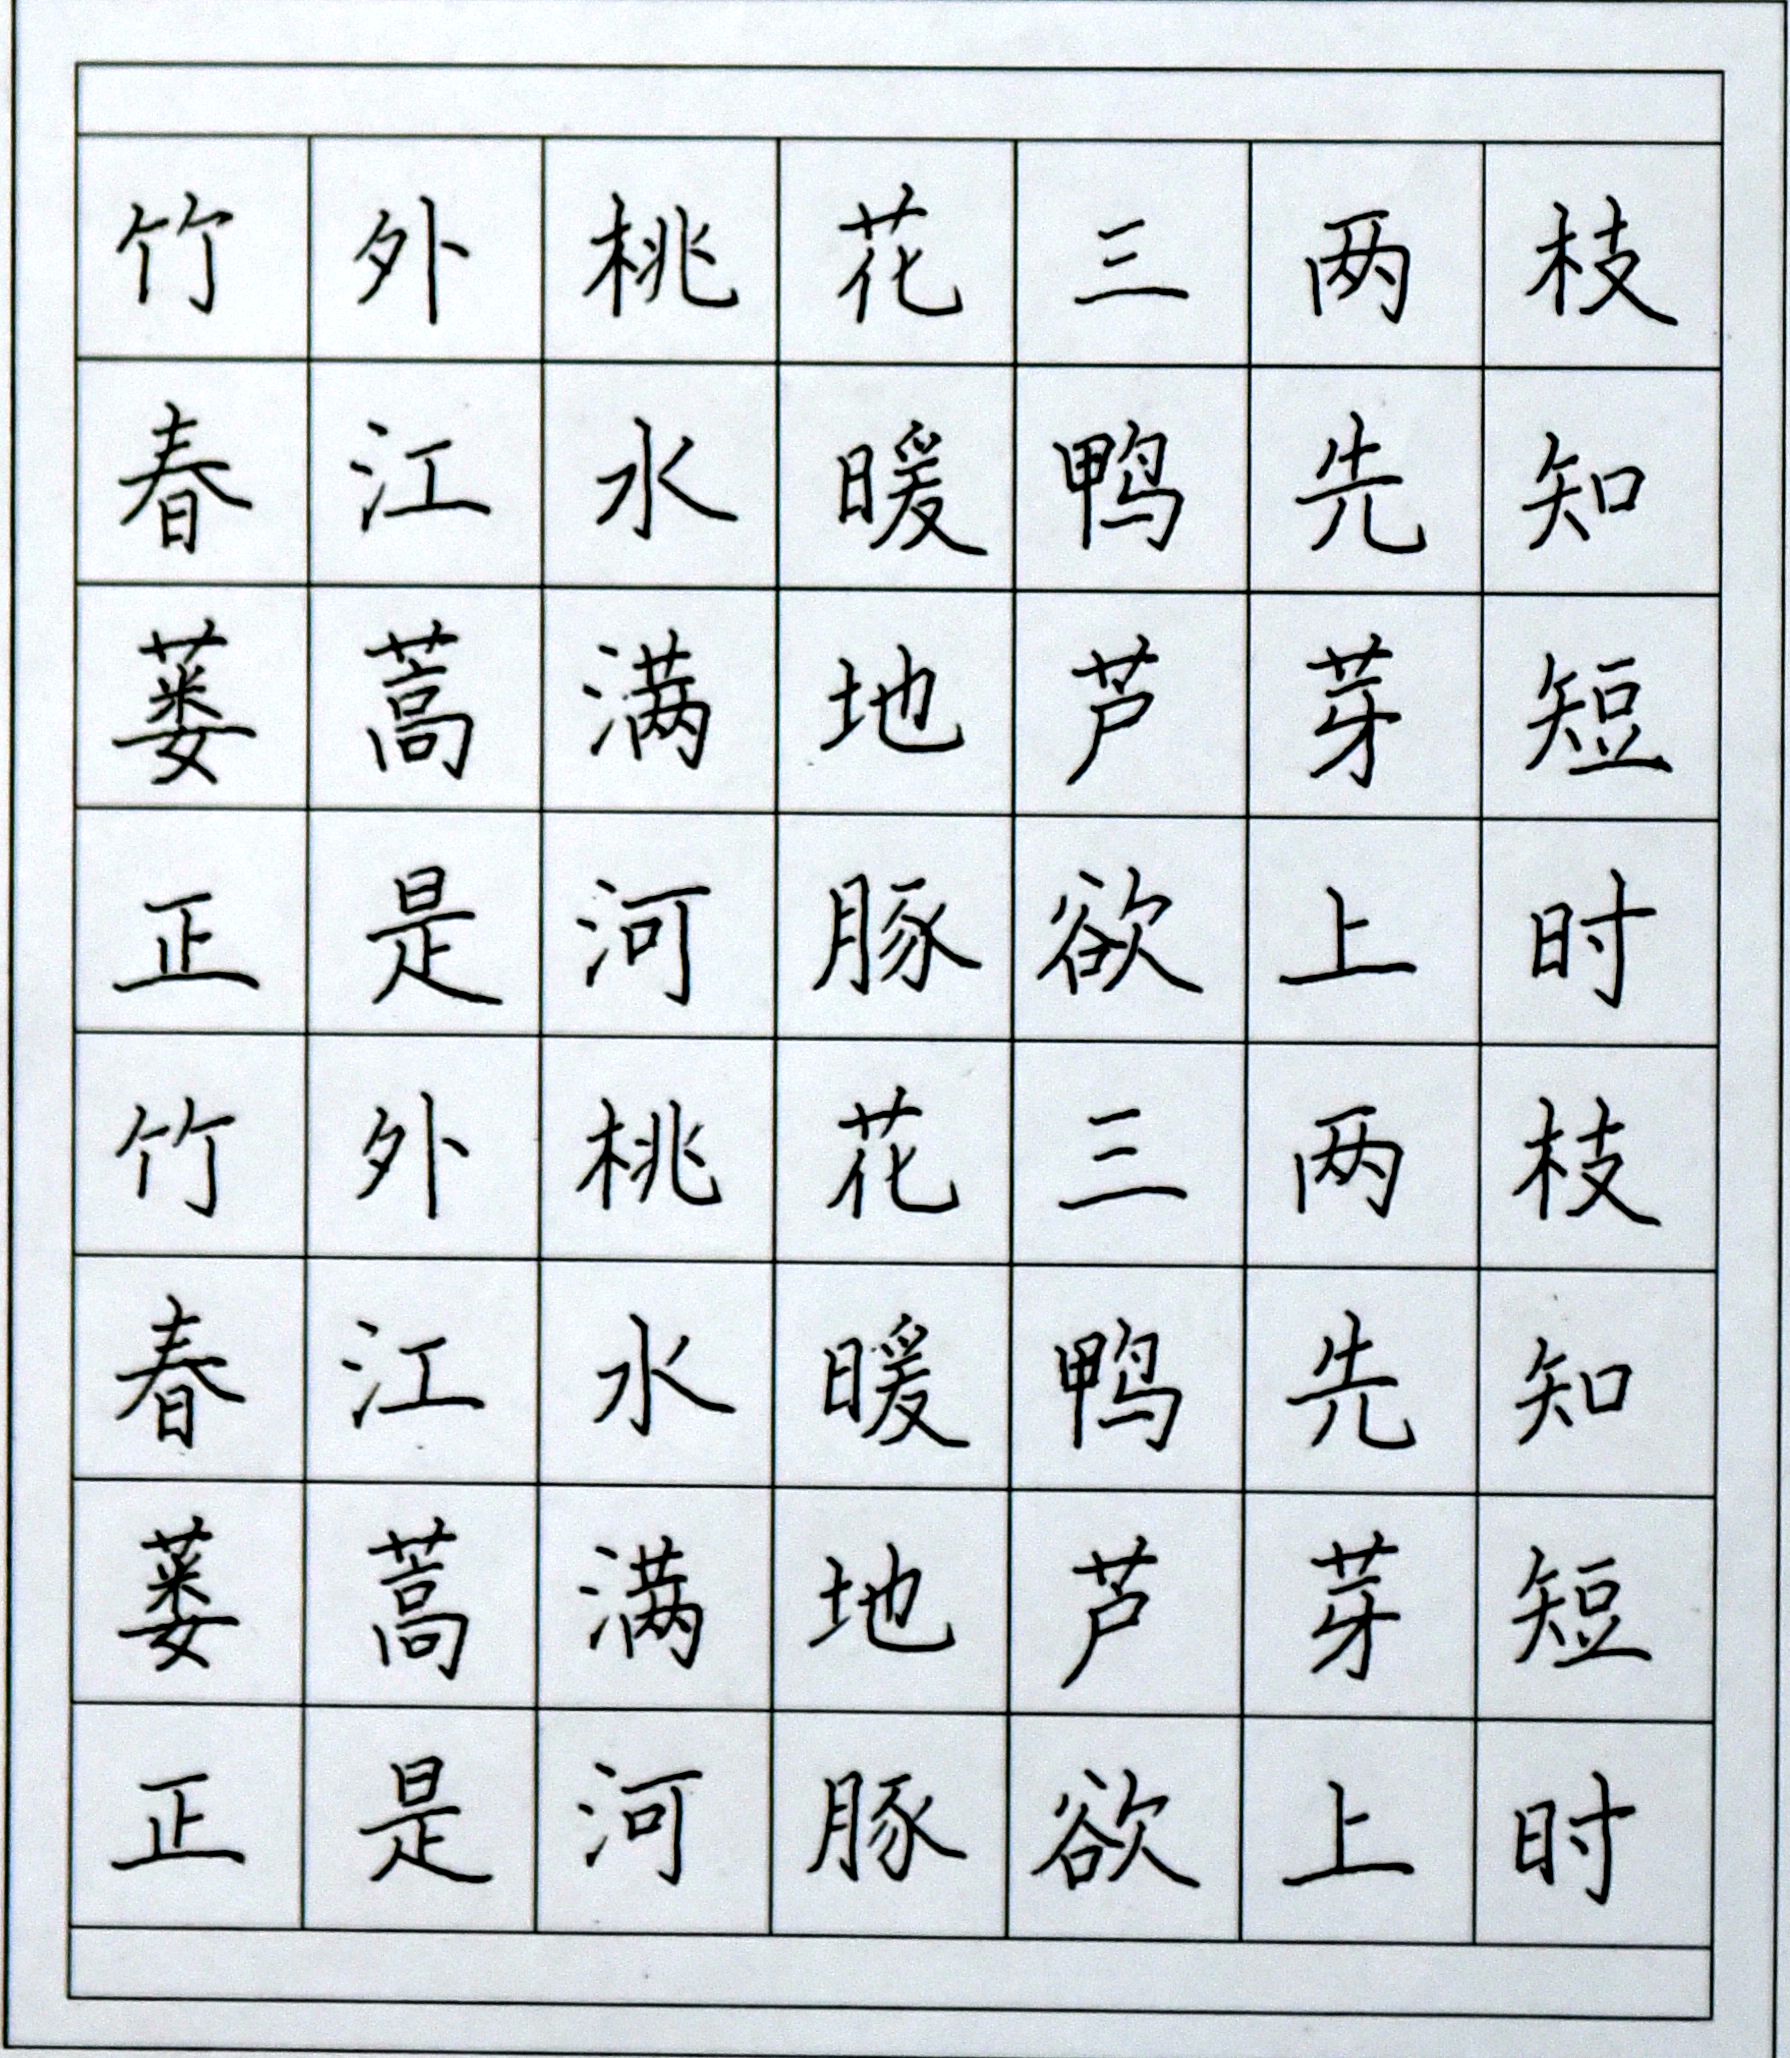 竹外桃花三两枝
春江水暖鸭先知
蒌蒿满地芦芽短
正是河豚欲上时
竹外桃花三两枝
春江水暖鸭先知
蒌蒿满地芦芽短
正是河豚欲上时